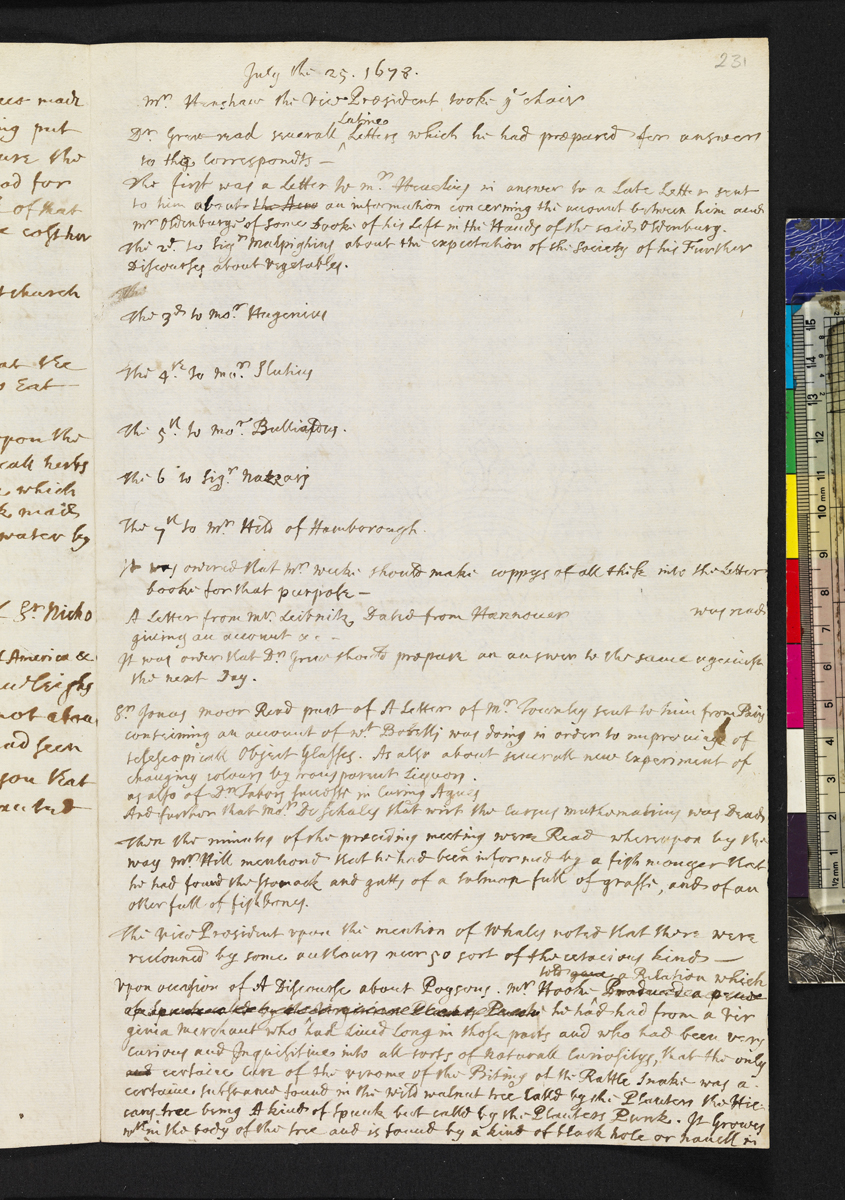 231
July the 25. 1678.
Mr. Henshaw the Vice Præsident tooke ye chair
Dr Grew read severall Latine Letters which he had præpared for answers
to the Correspondts —
The first was a Letter to mr. Hevelius in answer to a Late Letter sent
to him about an information concerning the account between him and
mr Oldenburge of some Books of his Left in the Hands of the said Oldenburg.
The 2d. to Sigr Malpighius about the expectation of the Society of his Further
Discourses about vegetables.
The
The 3d to mor. Hugenius
The 4th to mor. Slusius
The 5th to mor. Bulliadous.
The 6 to Sigr. Nazzarij
The 7th to Mr. Held of Hamborough.
It was ordered that mr weeks should make coppys of all these into the Letter
booke for that purpose —
A Letter from mr. Leibnitz Dated from Hannover was read
giving an account &c —
It was order that Dr. Grew should præpare an answer to the same against
the next Day.
Sr. Jonas moor Read part of A Letter of Mr. Townly sent to him from Paris
containing an account of wt. Borelli was doing in order to improving of
telescopicall Object Glasses. As also about severall new Experiment of
changing colours by transparent Liquors.
as also of Dr. Tabors successe in Curing Agues
And further that Mor. De Schales that writ the Cursus mathematicus was Dead
Then the minutes of the preceding meeting were Read whereupon by the
way mr Hill mentiond that he had been informed by a fish monger that
he had found the stomack and gutts of a salmon full of grasse, and of an
other full of fishbones.
The vice Præsident upon the mention of Whales noted that there were
reckoned by some authours neer 50 sort of the cetacious kind —
Upon occasion of A Discourse about Poysons. mr. Hooke told gave a Relation which Produced a peice
he had had from a Vir
ginia merchant who had Lived Long in those parts and who had been very
curious and Inquisitive into all sorts of naturall Curiositys, that the only
and certaine Cure of the venome of the Biting of the Rattle Snake was a
certaine substance found in the wild walnut tree Calld by the Planters the Hic
cary tree being A kind of spunck but calld by the Planters Punk. It Growes
wth in the body of the tree and is found by a kind of black hole or nauell in